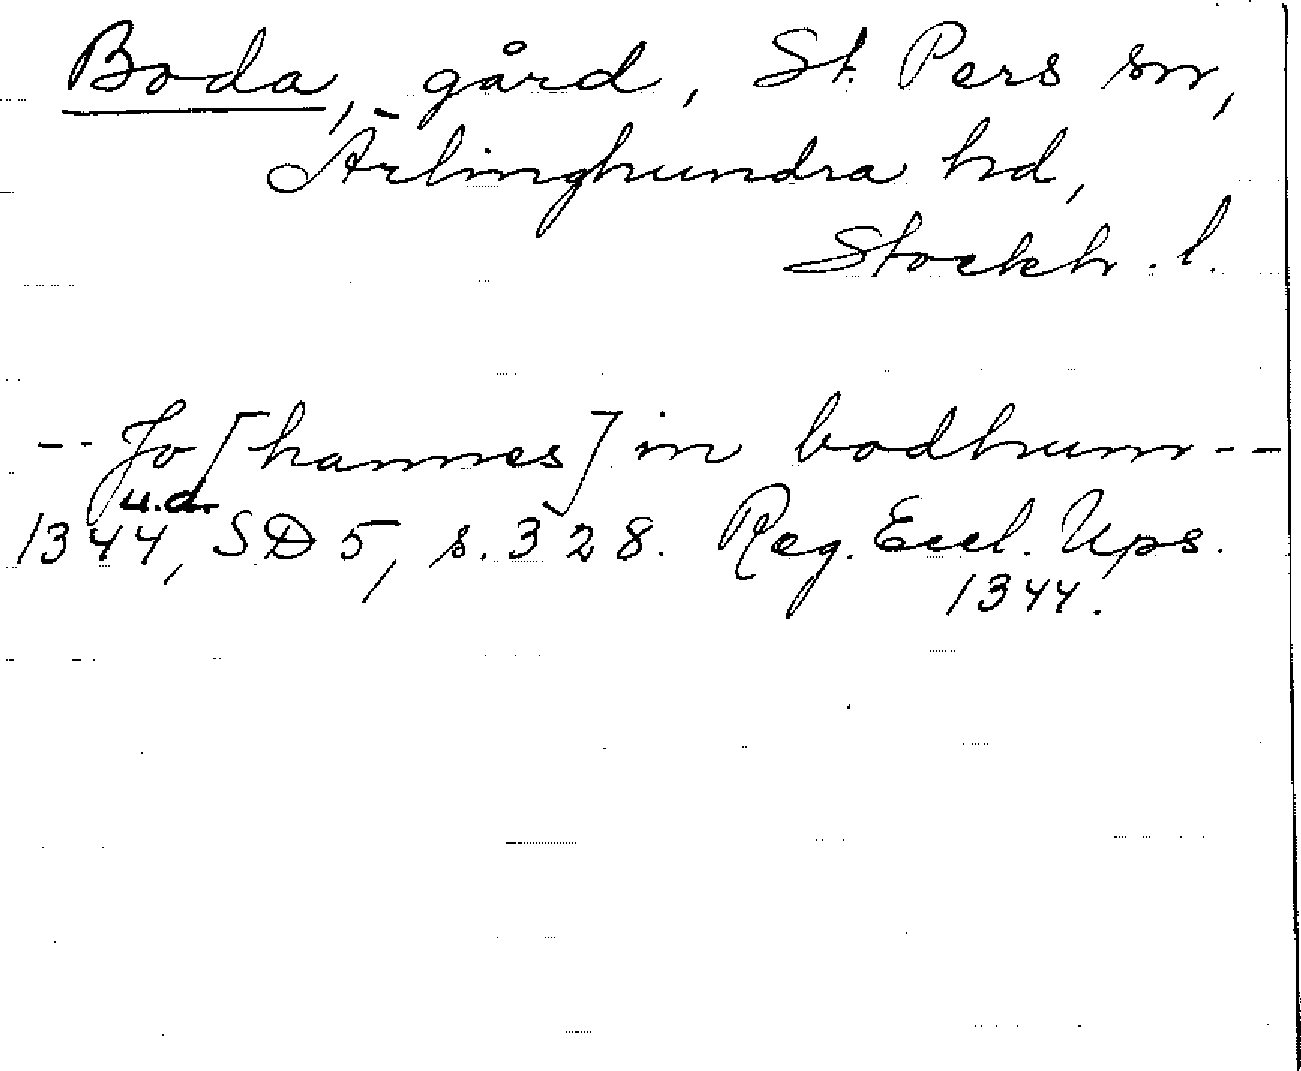 Boda, gård, St. Pers sn,
Ärlinghundra hd,
Stockh. l.
-- Jo[hannes] in bodhum --
u.d.
1344, SD 5, s. 328. Reg. Eccl. Ups.
1344.